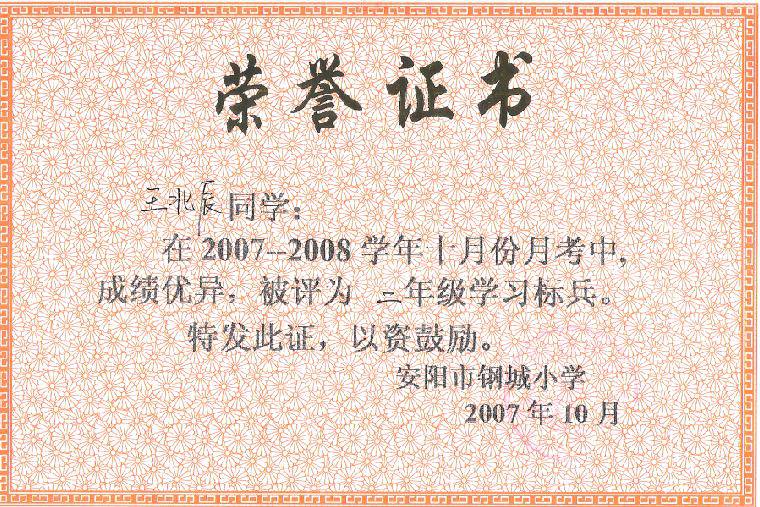 荣誉证书
王北辰同学：
在2007--2008学年十月份月考中,
成绩优异，被评为 二年级学习标兵。
特发此证，以资鼓励。
安阳市钢城小学
2007年10月